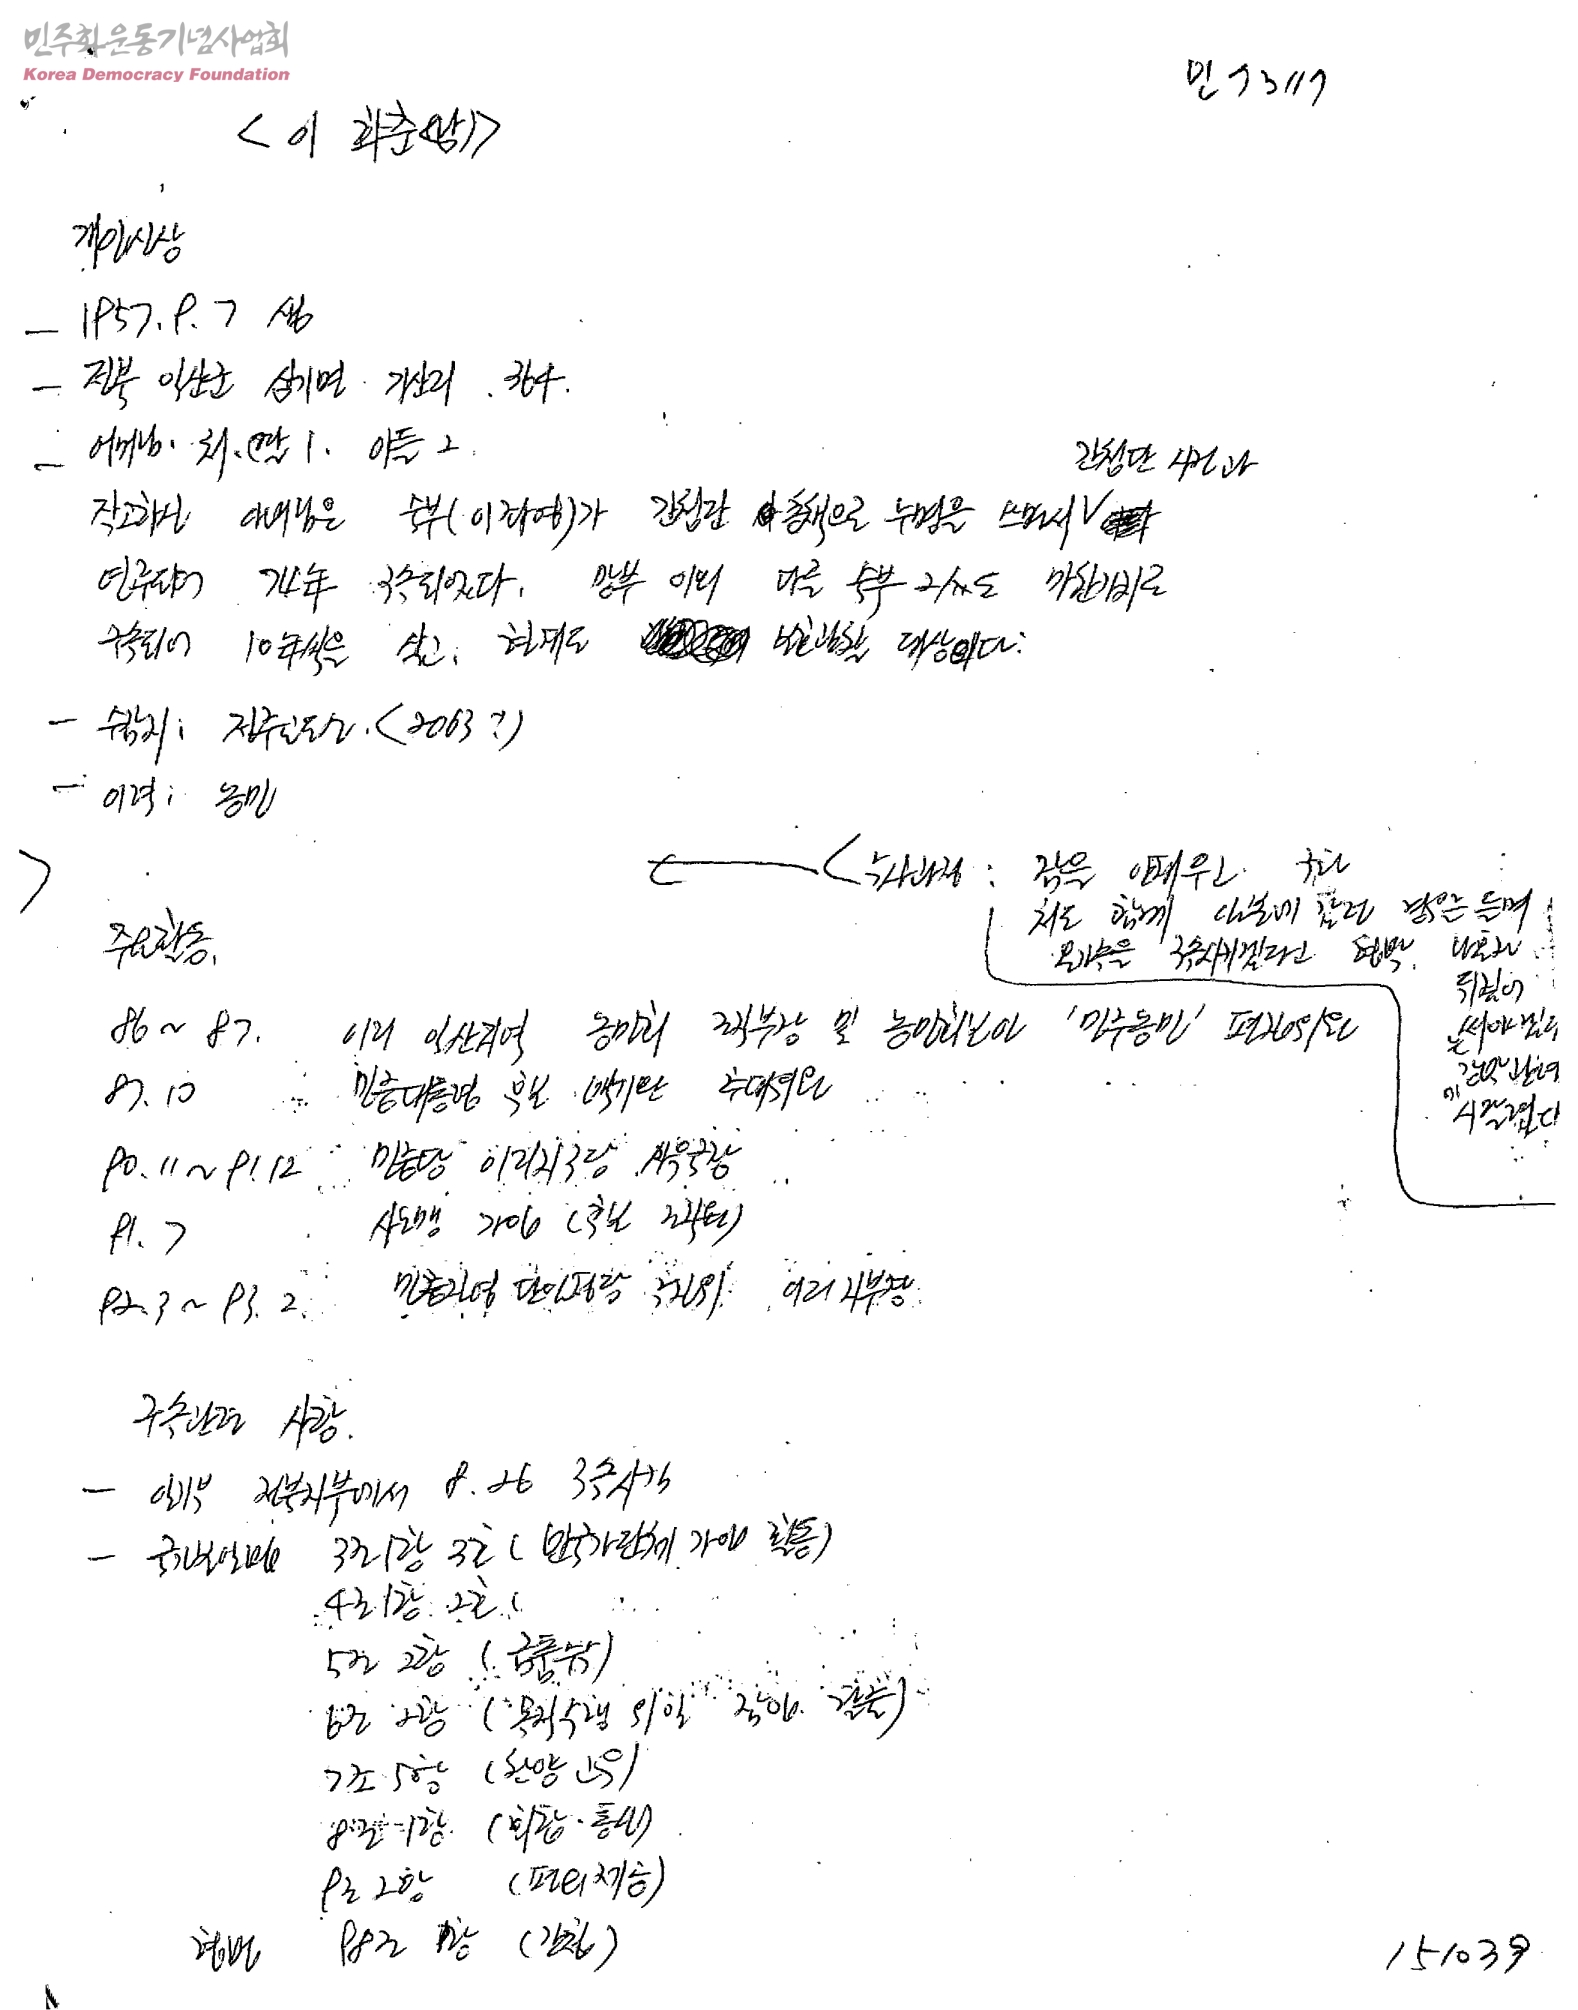 민주화운동기념사업회
Korea Democracy Foundation
민 73117
<이 화춘(남)>
개인신상
- 1957. 9. 7 생
- 전북 익산군 삼기면 기산리 364.
- 어머님. 처. 딸 1. 아들 2.
간첩단 사건과
작고하신 아버님은 숙부(이좌영)가 간첩단 총책으로 누명을 쓰면서 V
연루되어 74年 구속되었다. 망부 이외 다른 숙부 2人도 마찬가지로
구속되어 10年씩을 살고, 현재도 보안관찰 대상이다.
- 수감지: 전주교도소. (2063?)
- 이력: 농민
< 수사과정: 잠을 안재우고 구타
처도 함께 안기부에 끌려 폭언 들며
온가족을 구속시키겠다고 협박.
뒤집어
씌이
시달렸다
주요활동.
86 ~ 87. 이리 익산지역 농민회 조직부장 및 농민회보인 '민주농민' 편집위원
87. 10 민중대통령 후보 백기완 추대위원
90. 11 ~ 91. 12 민중당 이리지구당 사무국장
91. 7 사노맹 가입 (후보 조직원)
92. 3 ~ 93. 2. 민중진영 단일정당 추진위 이리지부장
구속관련 사항.
- 안기부 전북지부에서 8. 26 구속시킴
- 국가보안법 3조1항 3호 (반국가단체 가입 활동)
4조1항 2호 (
5조 2항 (금품수수)
6조 2항 (목적수행 위한 잠입. 탈출)
7조 5항 (찬양 고무)
8조 1항 (회합·통신)
9조 2항 (편의제공)
형법 98조 1항 (간첩)
151039